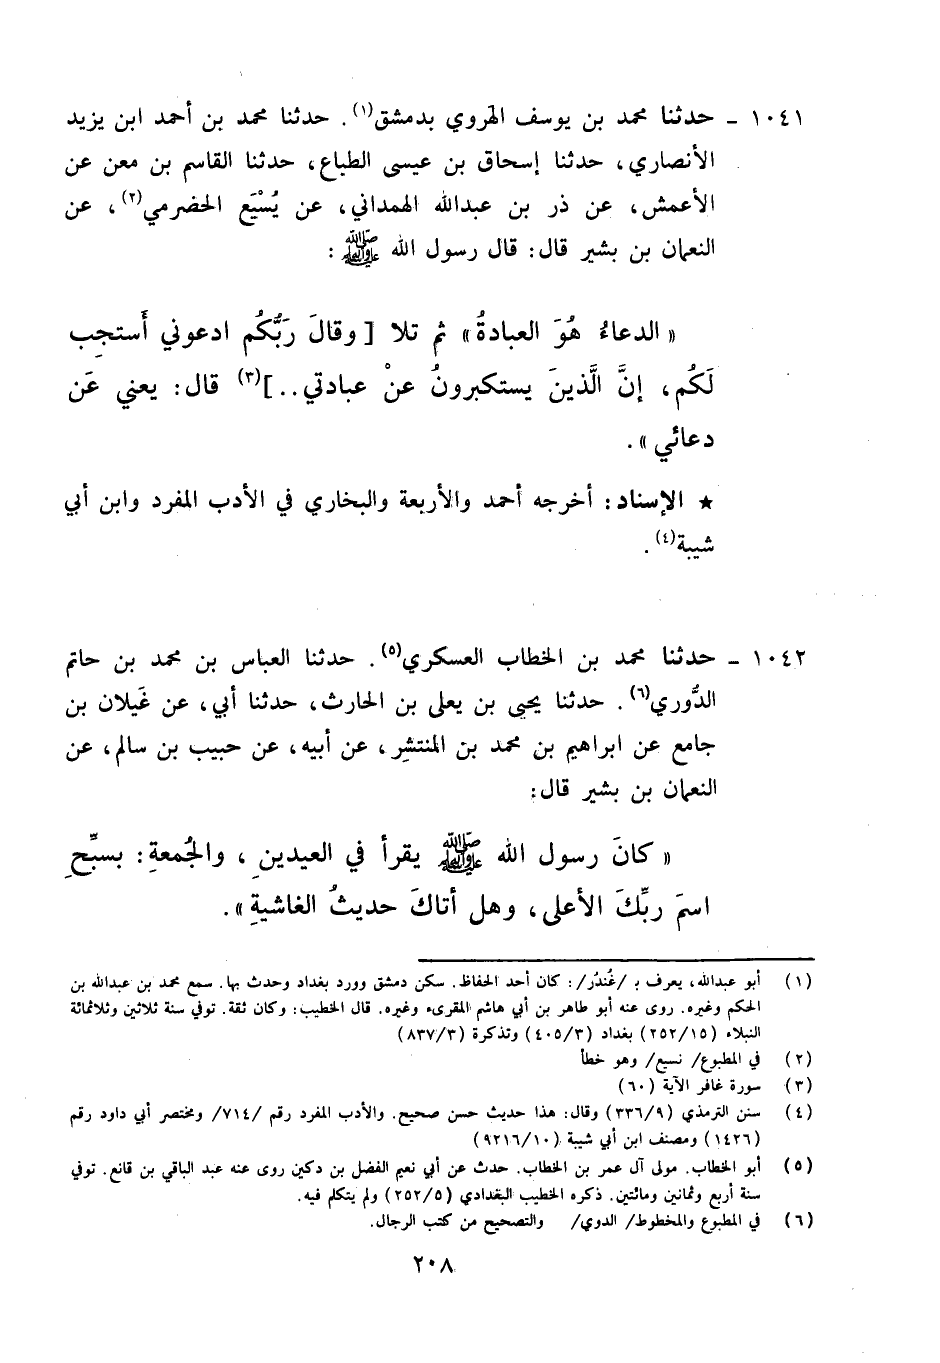 ١٠٤١ - حدثنا محمد بن يوسف الهروي بدمشق(١). حدثنا محمد بن أحمد ابن يزيد
الأنصاري، حدثنا إسحاق بن عيسى الطباع، حدثنا القاسم بن معن عن
الأعمش، عن ذر بن عبدالله الهمداني، عن يُسْيَع الحضرمي(٢)، عن
النعمان بن بشير قال: قال رسول الله ﷺ:
« الدعاءُ هُوَ العبادةُ» ثم تلا [ وقالَ رَبُّكُم ادعوني أَستجِب
لَكُم، إنَّ الَّذينَ يستكبرونُ عنْ عبادتي..](٣) قال: يعني عَن
دعائي ».
★ الإسناد: أخرجه أحمد والأربعة والبخاري في الأدب المفرد وابن أبي
شيبة(٤).
١٠٤٢ - حدثنا محمد بن الخطاب العسكري(٥). حدثنا العباس بن محمد بن حاتم
الدُّوري(٦). حدثنا يحيى بن يعلى بن الحارث، حدثنا أبي، عن غَيلان بن
جامع عن ابراهيم بن محمد بن المنتشِر، عن أبيه، عن حبيب بن سالم، عن
النعمان بن بشير قال:
« كانَ رسول الله ﷺ يقرأ في العيدينِ، والجُمعةِ: بسبِّحِ
اسمَ ربِّكَ الأعلى، وهل أتاكَ حديثُ الغاشيةِ».
(١) أبو عبدالله، يعرف بـ /غُندُر/: كان أحد الحفاظ. سكن دمشق وورد بغداد وحدث بها. سمع محمد بن عبدالله بن
الحكم وغيره. روى عنه أبو طاهر بن أبي هاشم المقرىء وغيره. قال الخطيب: وكان ثقة. توفي سنة ثلاثين وثلاثمائة
النبلاء (٢٥٢/١٥) بغداد (٤٠٥/٣) وتذكرة (٨٣٧/٣)
(٢) في المطبوع/ نسيع/ وهو خطأ
(٣) سورة غافر الآية (٦٠)
(٤) سنن الترمذي (٣٣٦/٩) وقال: هذا حديث حسن صحيح. والأدب المفرد رقم /٧١٤/ ومختصر أبي داود رقم
(١٤٢٦) ومصنف ابن أبي شيبة (٩٢١٦/١٠)
(٥) أبو الخطاب. مولى آل عمر بن الخطاب. حدث عن أبي نعيم الفضل بن دكين روى عنه عبد الباقي بن قانع. توفي
سنة أربع وثمانين ومائتين. ذكره الخطيب البغدادي (٢٥٢/٥) ولم يتكلم فيه.
(٦) في المطبوع والمخطوط/ الدوي/ والتصحيح من كتب الرجال.
٢٠٨